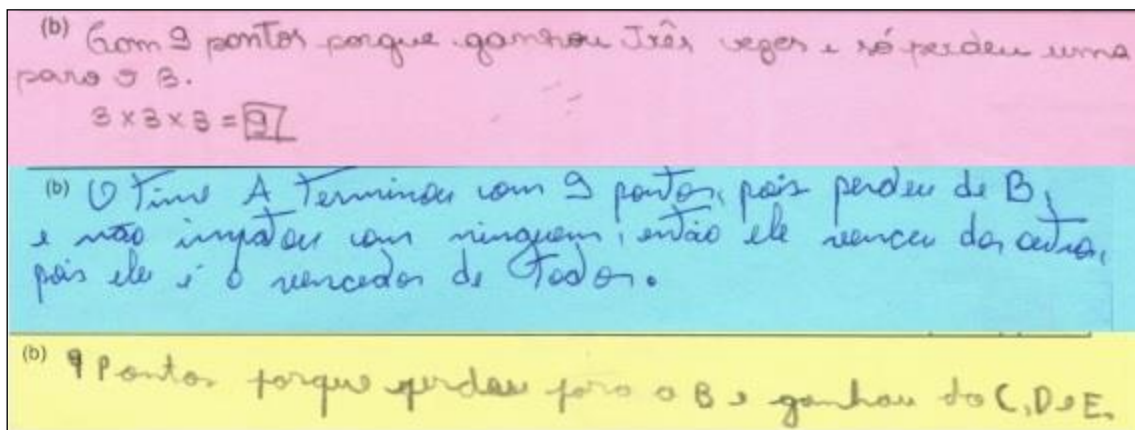 (b) Com 9 pontos porque ganhou Três vezes e só perdeu uma
para o B.
3 x 3 x 3 = 9
(b) O Time A Terminou com 9 pontos, pois perdeu de B,
e não impatou com ninguem, então ele venceu dos outros,
pois ele é o vencedor de Todos.
(b) 9 Pontos porque perdeu para o B e ganhou do C, D e E.